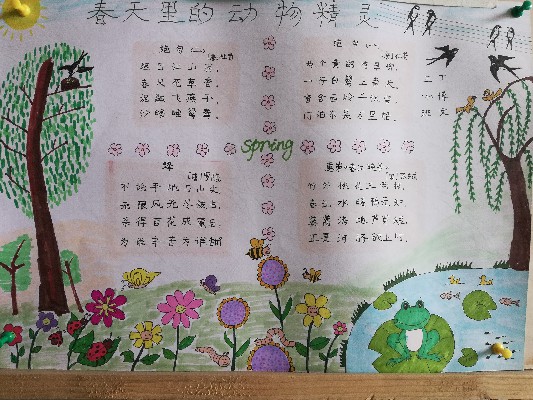 春天里的动物精灵
绝句(一)
迟日江山丽，
春风花草香。
泥融飞燕子，
沙暖睡鸳鸯。
绝句(二)
两个黄鹂鸣翠柳，
一行白鹭上青天。
窗含西岭千秋雪，
门泊东吴万里船。
spring
蜂
不论平地与山尖，
无限风光尽被占。
采得百花成蜜后，
为谁辛苦为谁甜
惠崇春江晚景
竹外桃花三两枝，
春江水暖鸭先知。
蒌蒿满地芦芽短，
正是河豚欲上时。